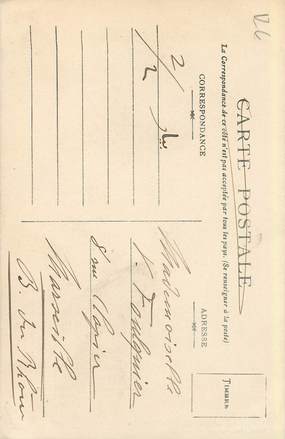 R6
CARTE POSTALE
La Correspondance de ce côté n'est pas acceptée par tous les pays. (Se renseigner à la poste)
CORRESPONDANCE
ADRESSE
TIMBRE
2/2
Mademoiselle
V.
8 rue
Marseille
B. du Rhône